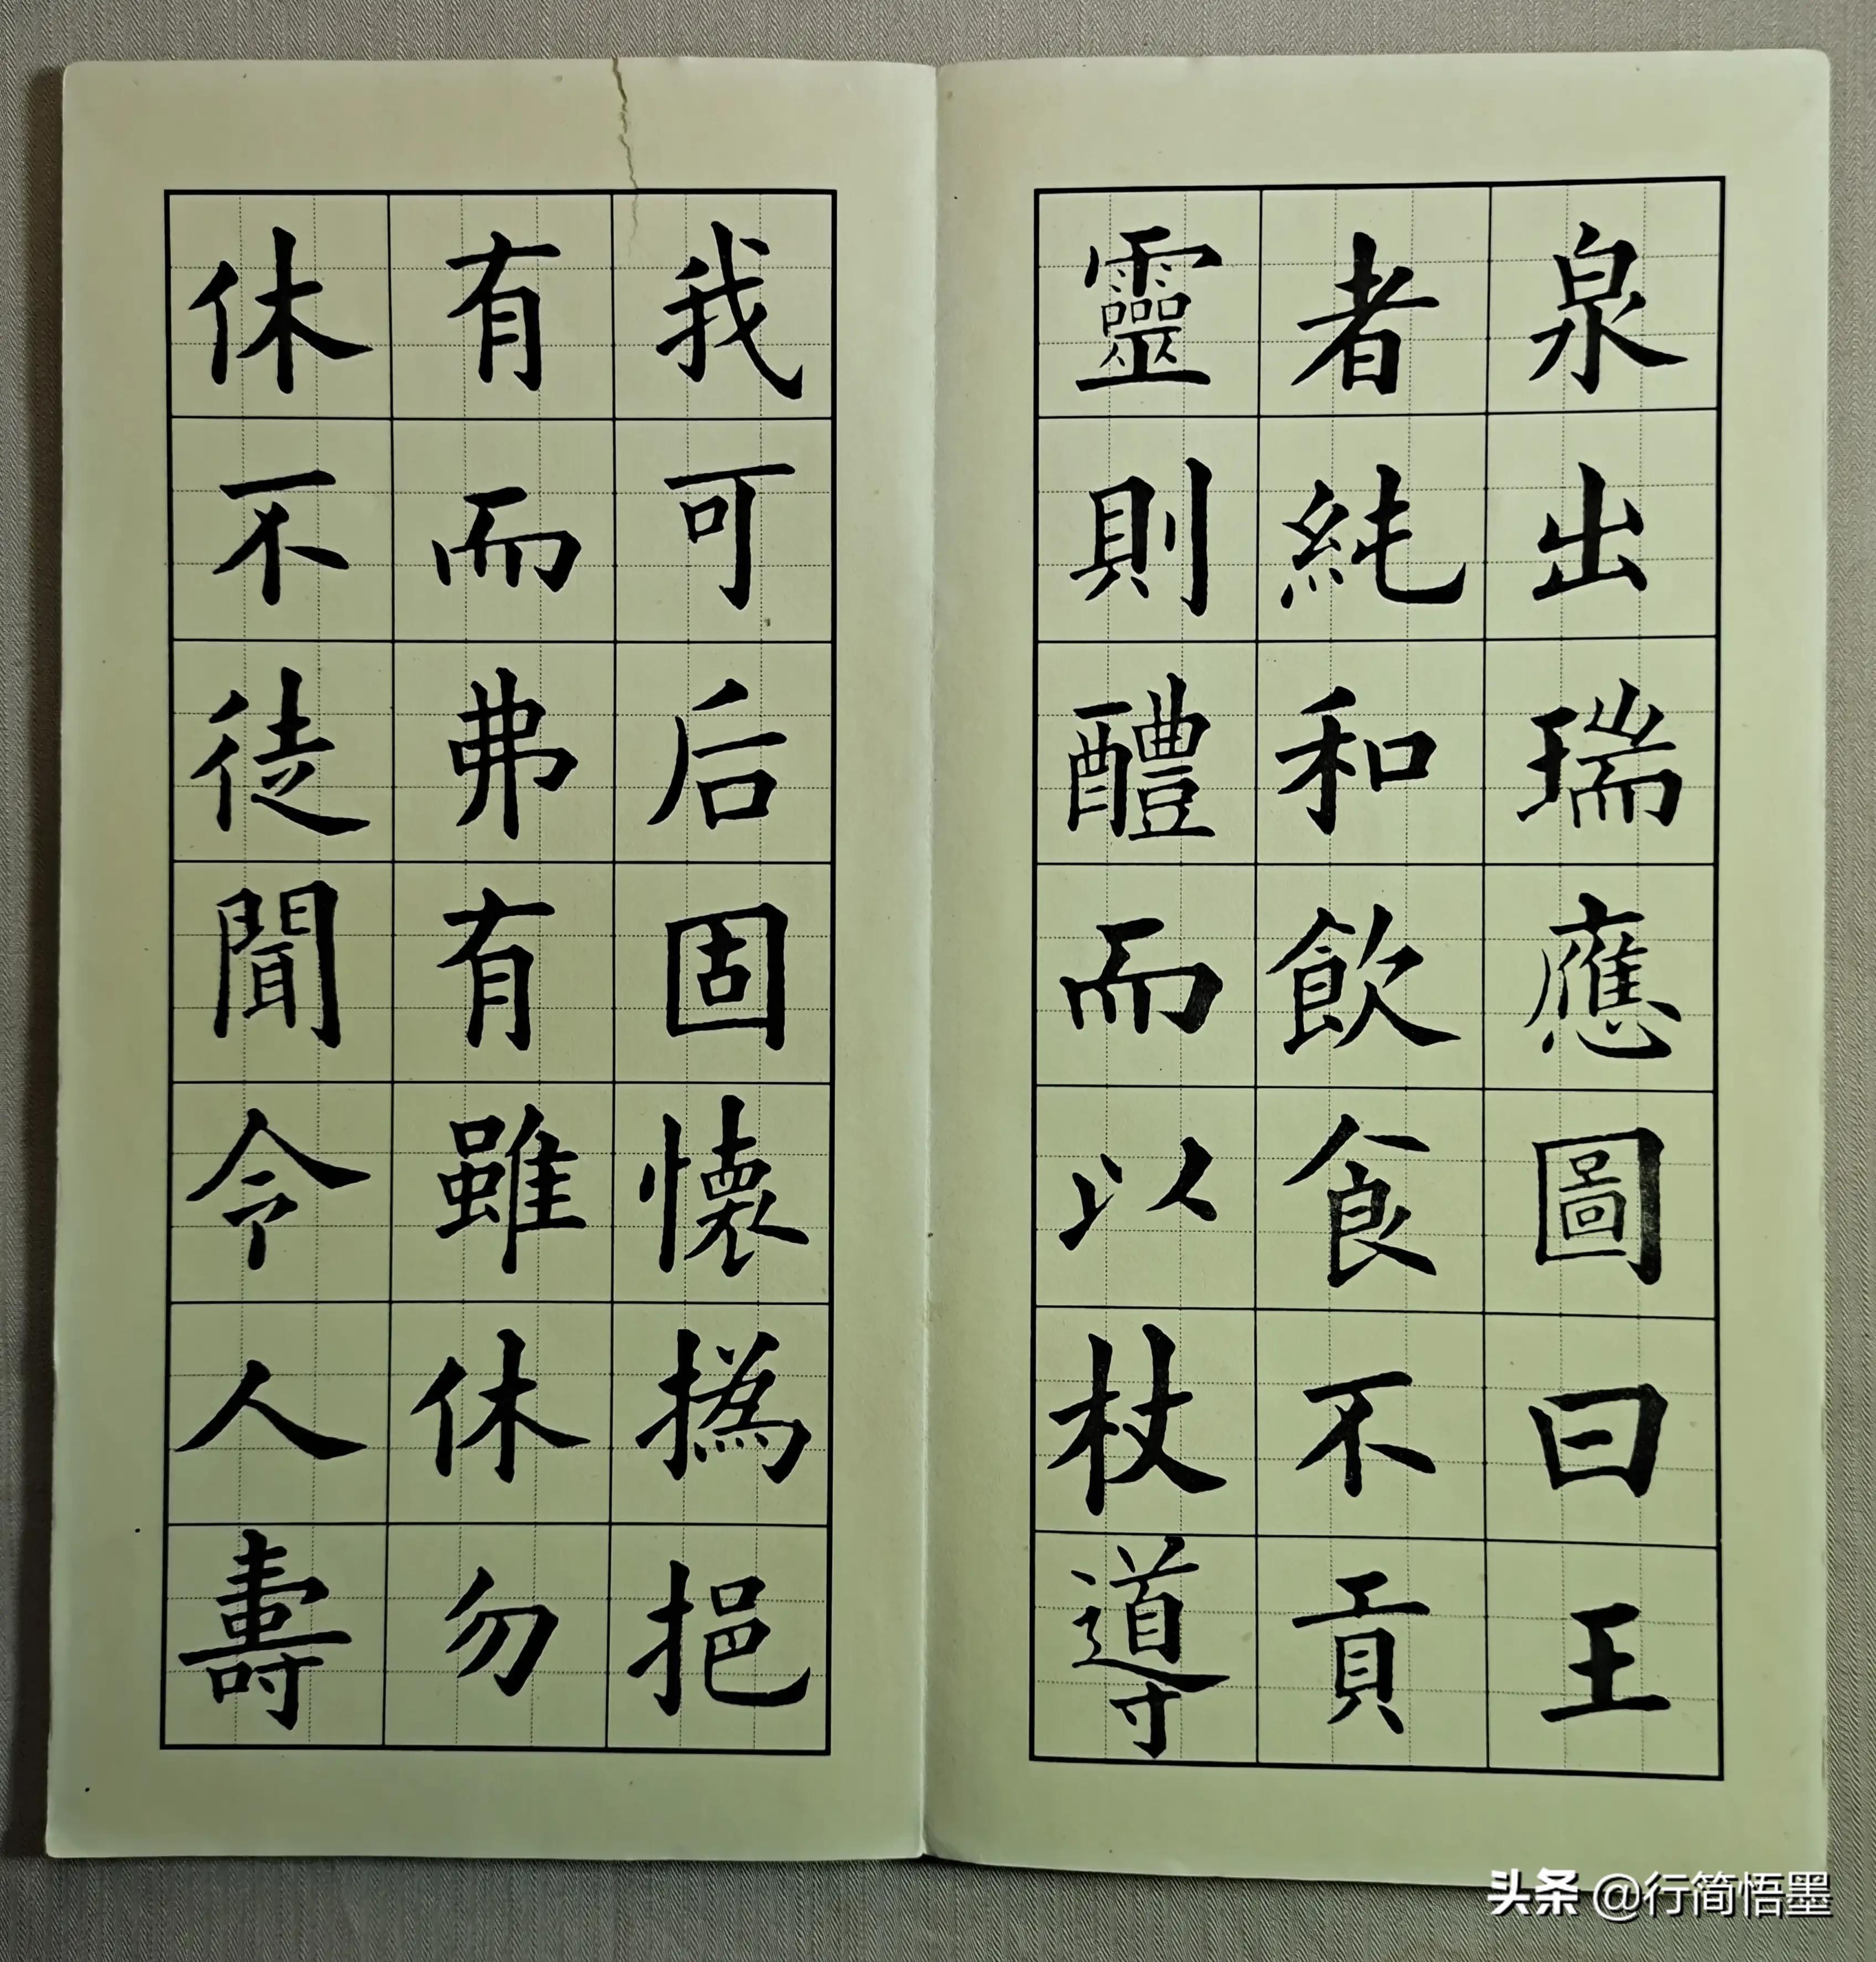 泉出瑞應圖曰王
者純和飲食不貢
靈則醴而以杖導
我可后固懷撝挹
有而弗有雖休勿
休不徒聞令人壽
头条 @行简悟墨